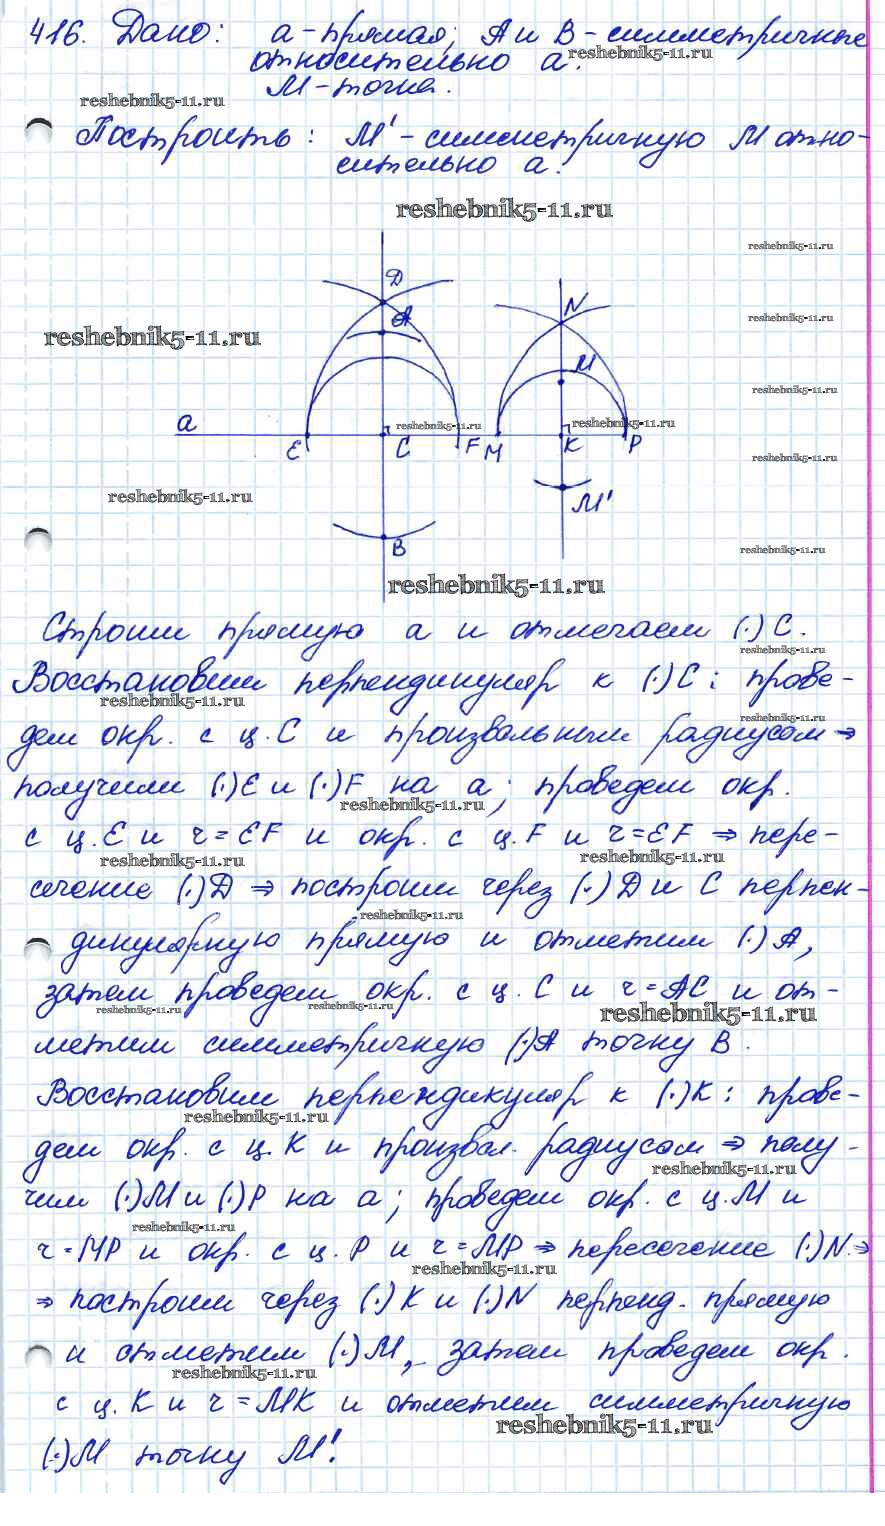 416. Дано: a - прямая; A и B - симметричные
относительно a.
M - точка.
Построить: M' - симметричную M отно-
сительно a.
D
A
N
M
a
E
C
F
M
K
P
M'
B
Строим прямую a и отмечаем (·) C.
Восстановим перпендикуляр к (·) C: прове-
дем окр. с ц. C и произвольным радиусом ⇒
получим (·) E и (·) F на a; проведем окр.
с ц. E и r = EF и окр. с ц. F и r = EF ⇒ пере-
сечение (·) D ⇒ построим через (·) D и C перпен-
дикулярную прямую и отметим (·) A,
затем проведем окр. с ц. C и r = AC и от-
метим симметричную (·) A точку B.
Восстановим перпендикуляр к (·) K: прове-
дем окр. с ц. K и произвол. радиусом ⇒ полу-
чим (·) M и (·) P на a; проведем окр. с ц. M и
r = MP и окр. с ц. P и r = MP ⇒ пересечение (·) N. ⇒
⇒ построим через (·) K и (·) N перпенд. прямую
и отметим (·) M, затем проведем окр.
с ц. K и r = MK и отметим симметричную
(·) M точку M'.
reshebnik5-11.ru